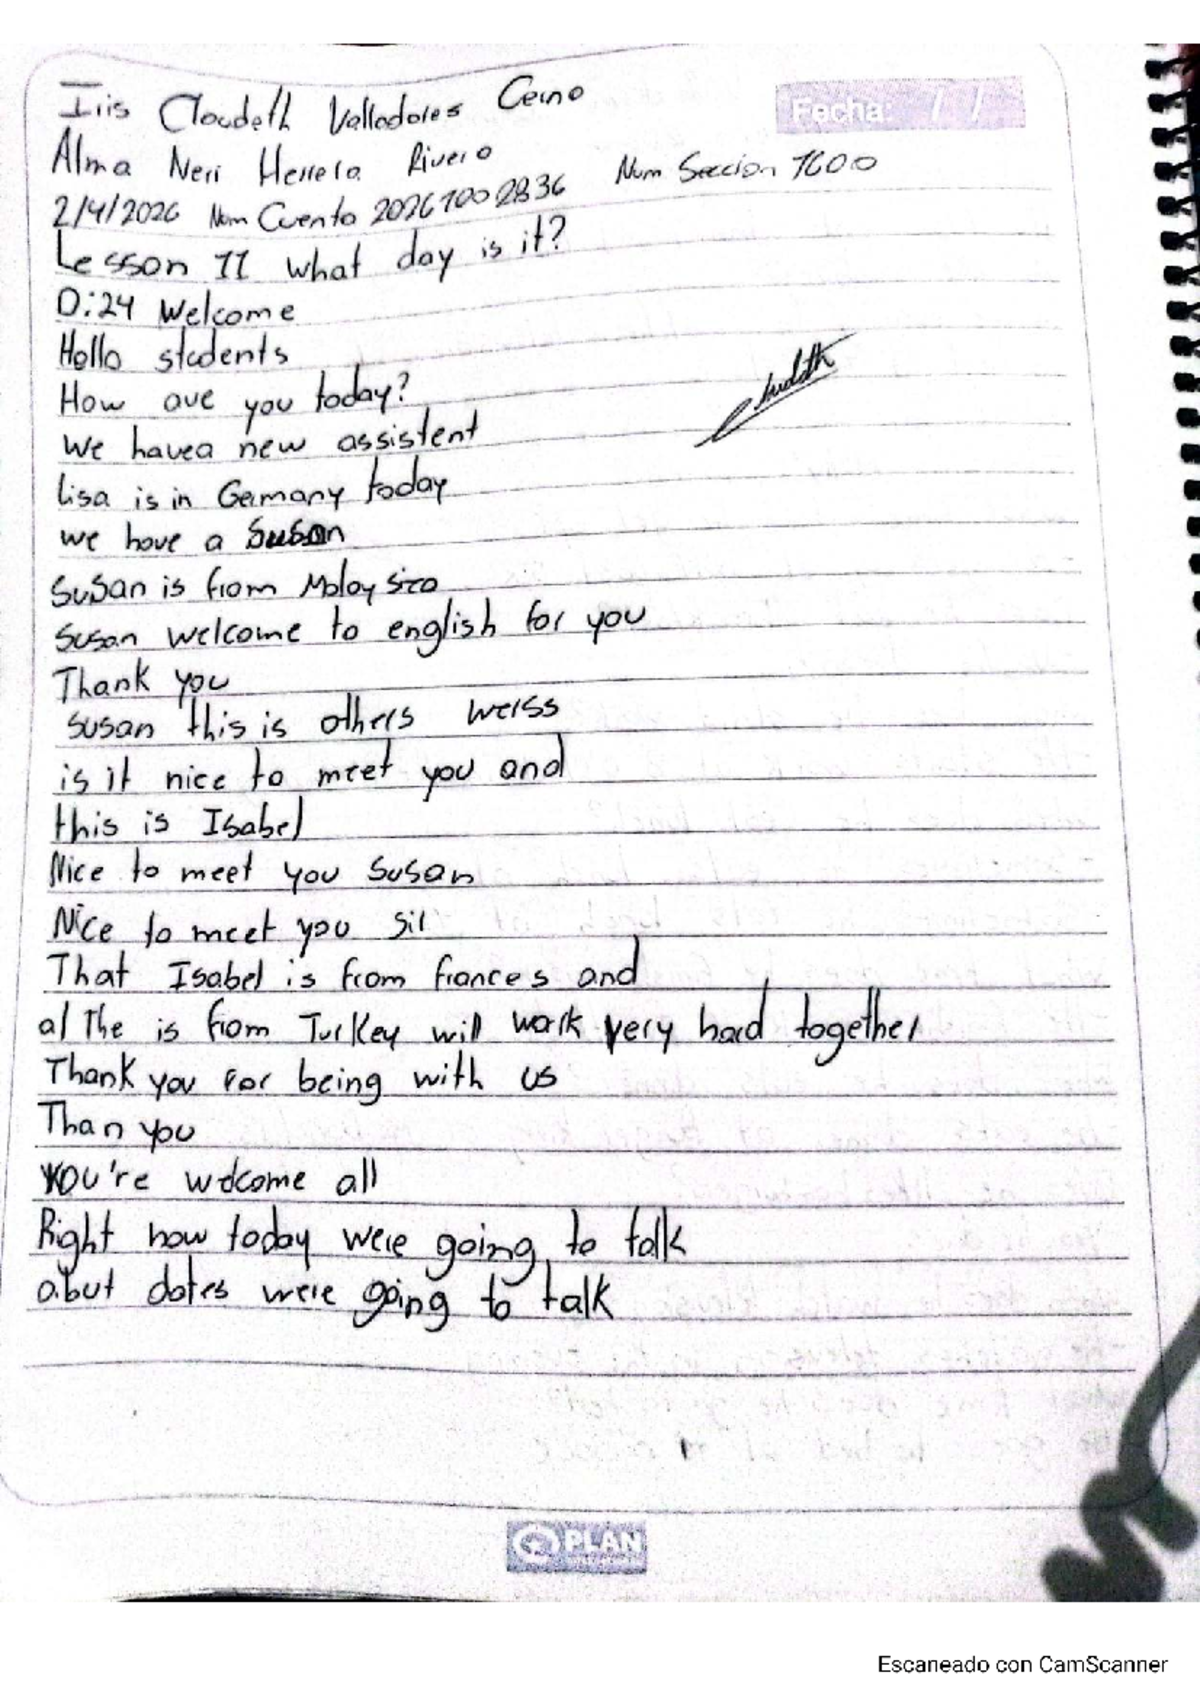 Iris Claudeth Valladares Cerno
Fecha: / /
Alma Neri Herrera Rivero
Num Seccion 1600
2/4/2026 Num Cuenta 20261002836
Lesson 11 what day is it?
0:24 Welcome
Hello students
How are you today?
We havea new assistent
Lisa is in Germany today
we have a Susan
Susan is from Malaysiza
Susan welcome to english for you
Thank you
Susan this is others weiss
is it nice to meet you and
this is Isabel
Nice to meet you Susan
Nice to meet you sir
That Isabel is from frances and
al The is from Turkey will work very hard together
Thank you For being with us
Than you
you're welcome all
Right now today were going to talk
abut dates were going to talk
PLAN
Escaneado con CamScanner